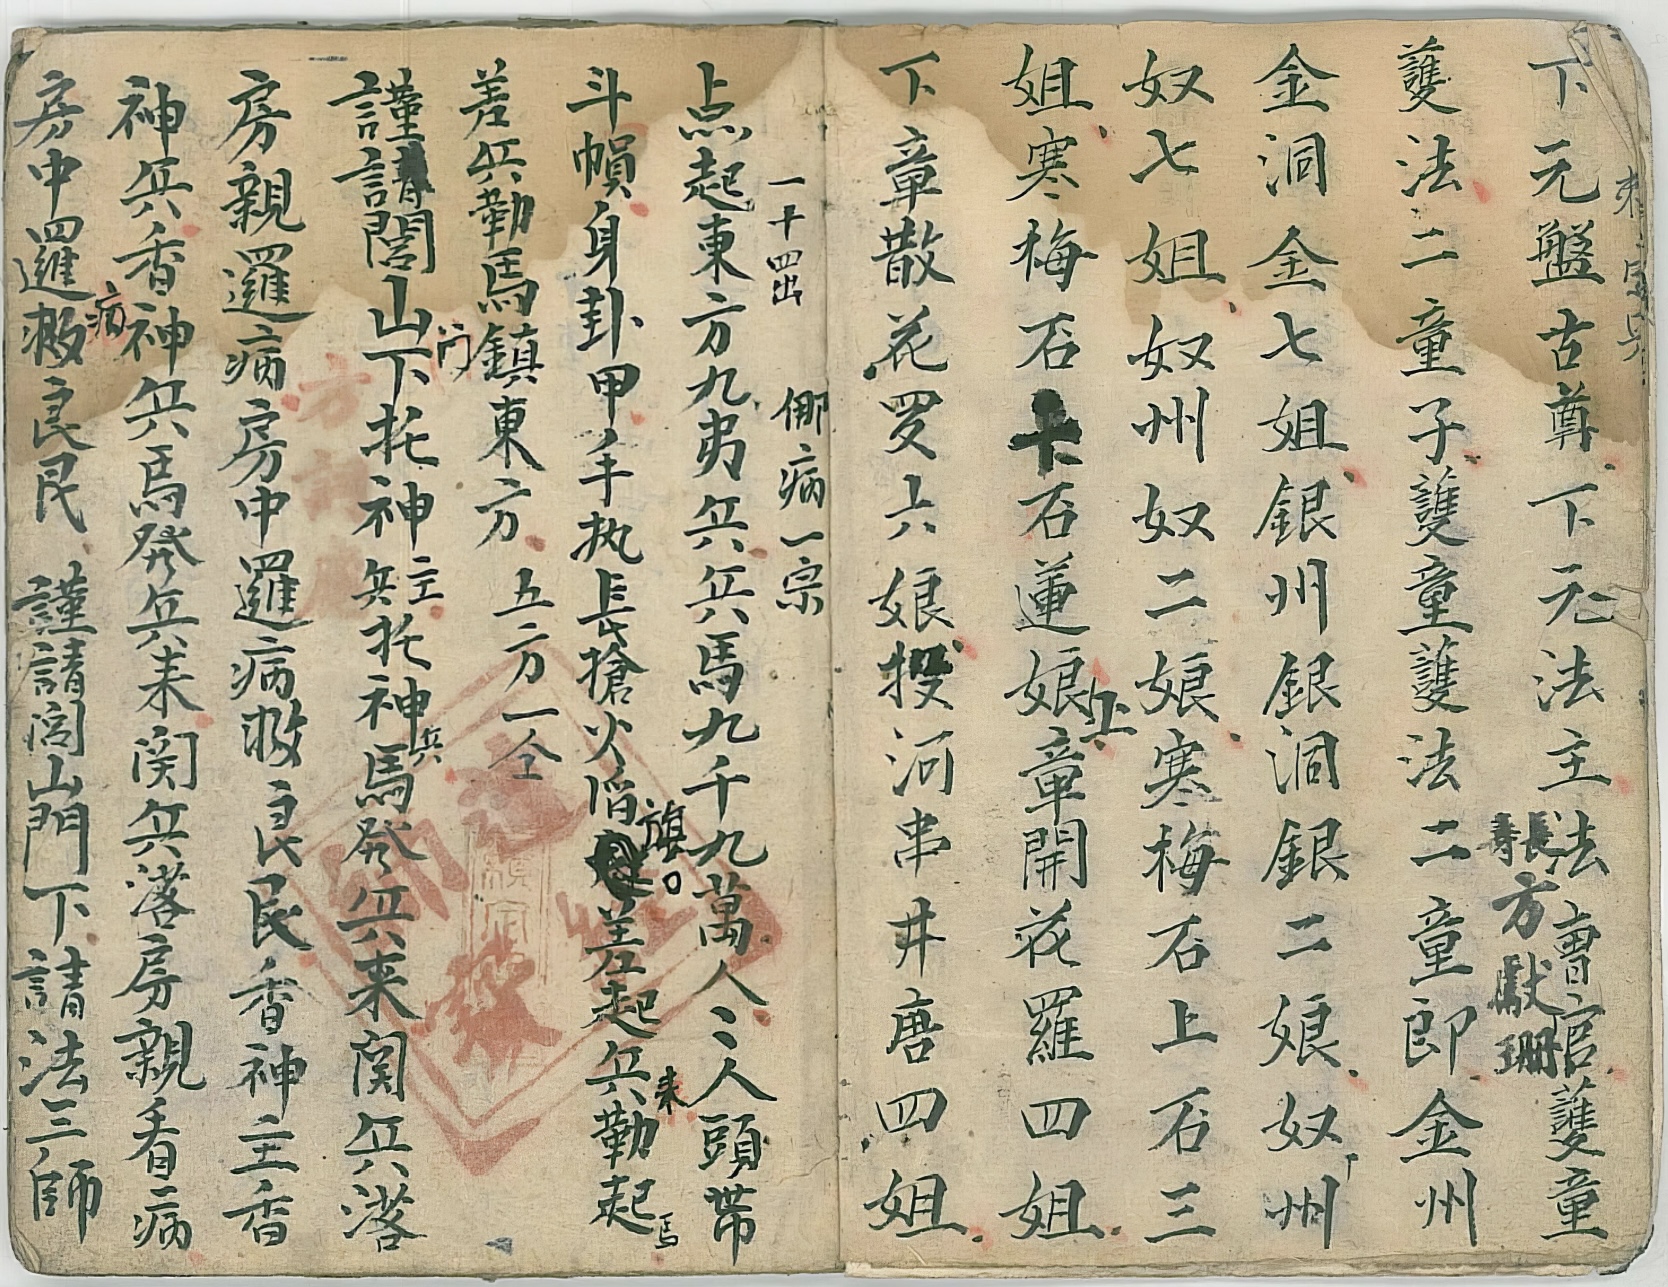 下元盤古尊下元法主法曹官護童
長壽
方獻珊
護法二童子護童護法二童郎金州
金洞金七姐銀州銀洞銀二娘奴州
奴七姐奴州奴二娘寒梅石上石三
姐寒梅石石蓮娘章開花羅四姐
下章散花罗六娘授河串井唐四姐
一十四出 倻病一宗
点起東方九夷兵兵馬九千九萬人〻人頭帶
斗幁身卦甲手执長搶火焰旗差起兵来勒起馬
差兵勒馬鎮東方 五方一仝
謹請閭山門下托神主兵托神兵馬發兵来関兵落
房親邏病房中邏病救良民香神主香
神兵香神兵馬發兵来関兵落房親看病
房中邏病救良民 謹請閭山門下請法三師